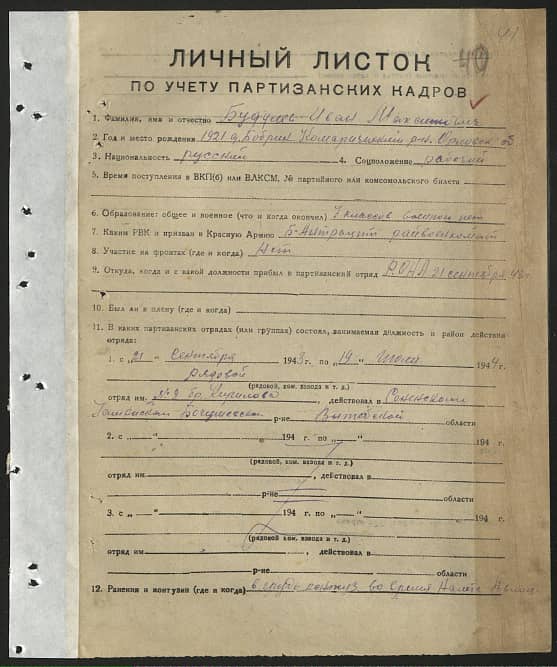 41
ЛИЧНЫЙ ЛИСТОК 40
ПО УЧЕТУ ПАРТИЗАНСКИХ КАДРОВ
1. Фамилия, имя и отчество Иван
2. Год и место рождения 1921 д. Бобрик Комаричский р-н. Орловск об
3. Национальность русский 4. Соцположение рабочий
5. Время поступления в ВКП(б) или ВЛКСМ, № партийного или комсомольского билета
6. Образование: общее и военное (что и когда окончил) 7 классов военного нет
7. Каким РВК и призван в Красную Армию райвоенкомат
8. Участие на фронтах (где и когда) Нет
9. Откуда, когда и с какой должности прибыл в партизанский отряд РОНА 21 сентября 43 г.
10. Был ли в плену (где и когда)
11. В каких партизанских отрядах (или группах) состоял, занимаемая должность и район действия
отряда:
1. с „21" Сентября 1943 г. по „19" Июня 1944 г.
рядовой
(рядовой, ком. взвода и т. д.)
отряд им. №9 бр. Кирилова, действовал в Сененском
р-не Витебской
2. с „ " 194 г. по „ " 194 г.
(рядовой, ком. взвода и т. д.)
отряд им , действовал в
р-не области
3. с „ " 194 г. по „ " 194 г.
(рядовой, ком. взвода и т. д.)
отряд им , действовал в
р-не области
12. Ранения и контузии (где и когда) во время